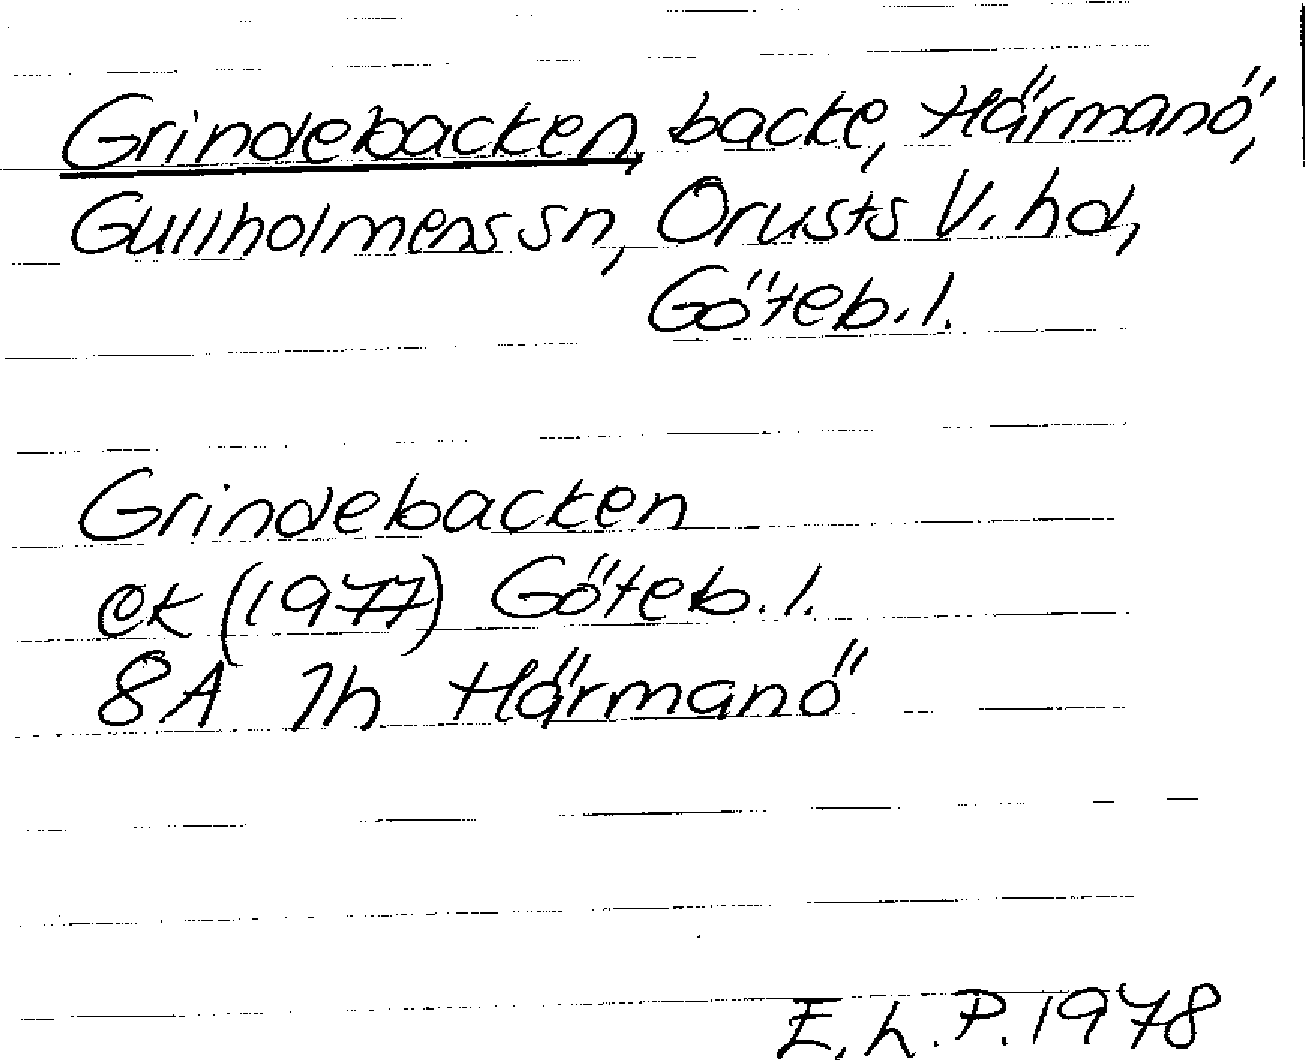 Grindebacken, backe, Härmanö,
Gullholmens sn, Orusts V. hd,
Göteb. l.
Grindebacken
ek (1977) Göteb. l.
8A 7h Härmanö
E. h. P. 1978